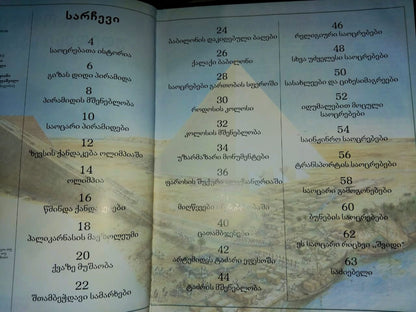 სარჩევი
4
საოცრებათა ისტორია
6
გიზას დიდი პირამიდა
8
პირამიდის მშენებლობა
10
საოცარი პირამიდები
12
ზევსის ქანდაკება ოლიმპიაში
14
ოლიმპია
16
წმინდა ქანდაკებები
18
ჰალიკარნასის მავზოლეუმი
20
ქვაზე მუშაობა
22
შთამბეჭდავი სამარხები
24
ბაბილონის დაკიდებული ბაღები
26
ქალაქი ბაბილონი
28
საოცრებები გართობის სფეროში
30
როდოსის კოლოსი
32
კოლოსის მშენებლობა
34
უზარმაზარი მონუმენტები
36
ფაროსის შუქურა ალექსანდრიაში
მიღწევები
40
ცათამბჯენები
42
არტემიდეს ტაძარი ეფესოში
44
ტაძრის მშენებლობა
46
რელიგიური საოცრებები
48
სხვა უძველესი საოცრებები
50
სასახლეები და ციხესიმაგრეები
52
იდუმალებით მოცული
საოცრებები
54
საინჟინრო საოცრებები
56
ტრანსპორტის საოცრებები
58
საოცარი გამოგონებები
60
ბუნების საოცრებები
62
ეს საოცარი რიცხვი „შვიდი“
63
საძიებელი